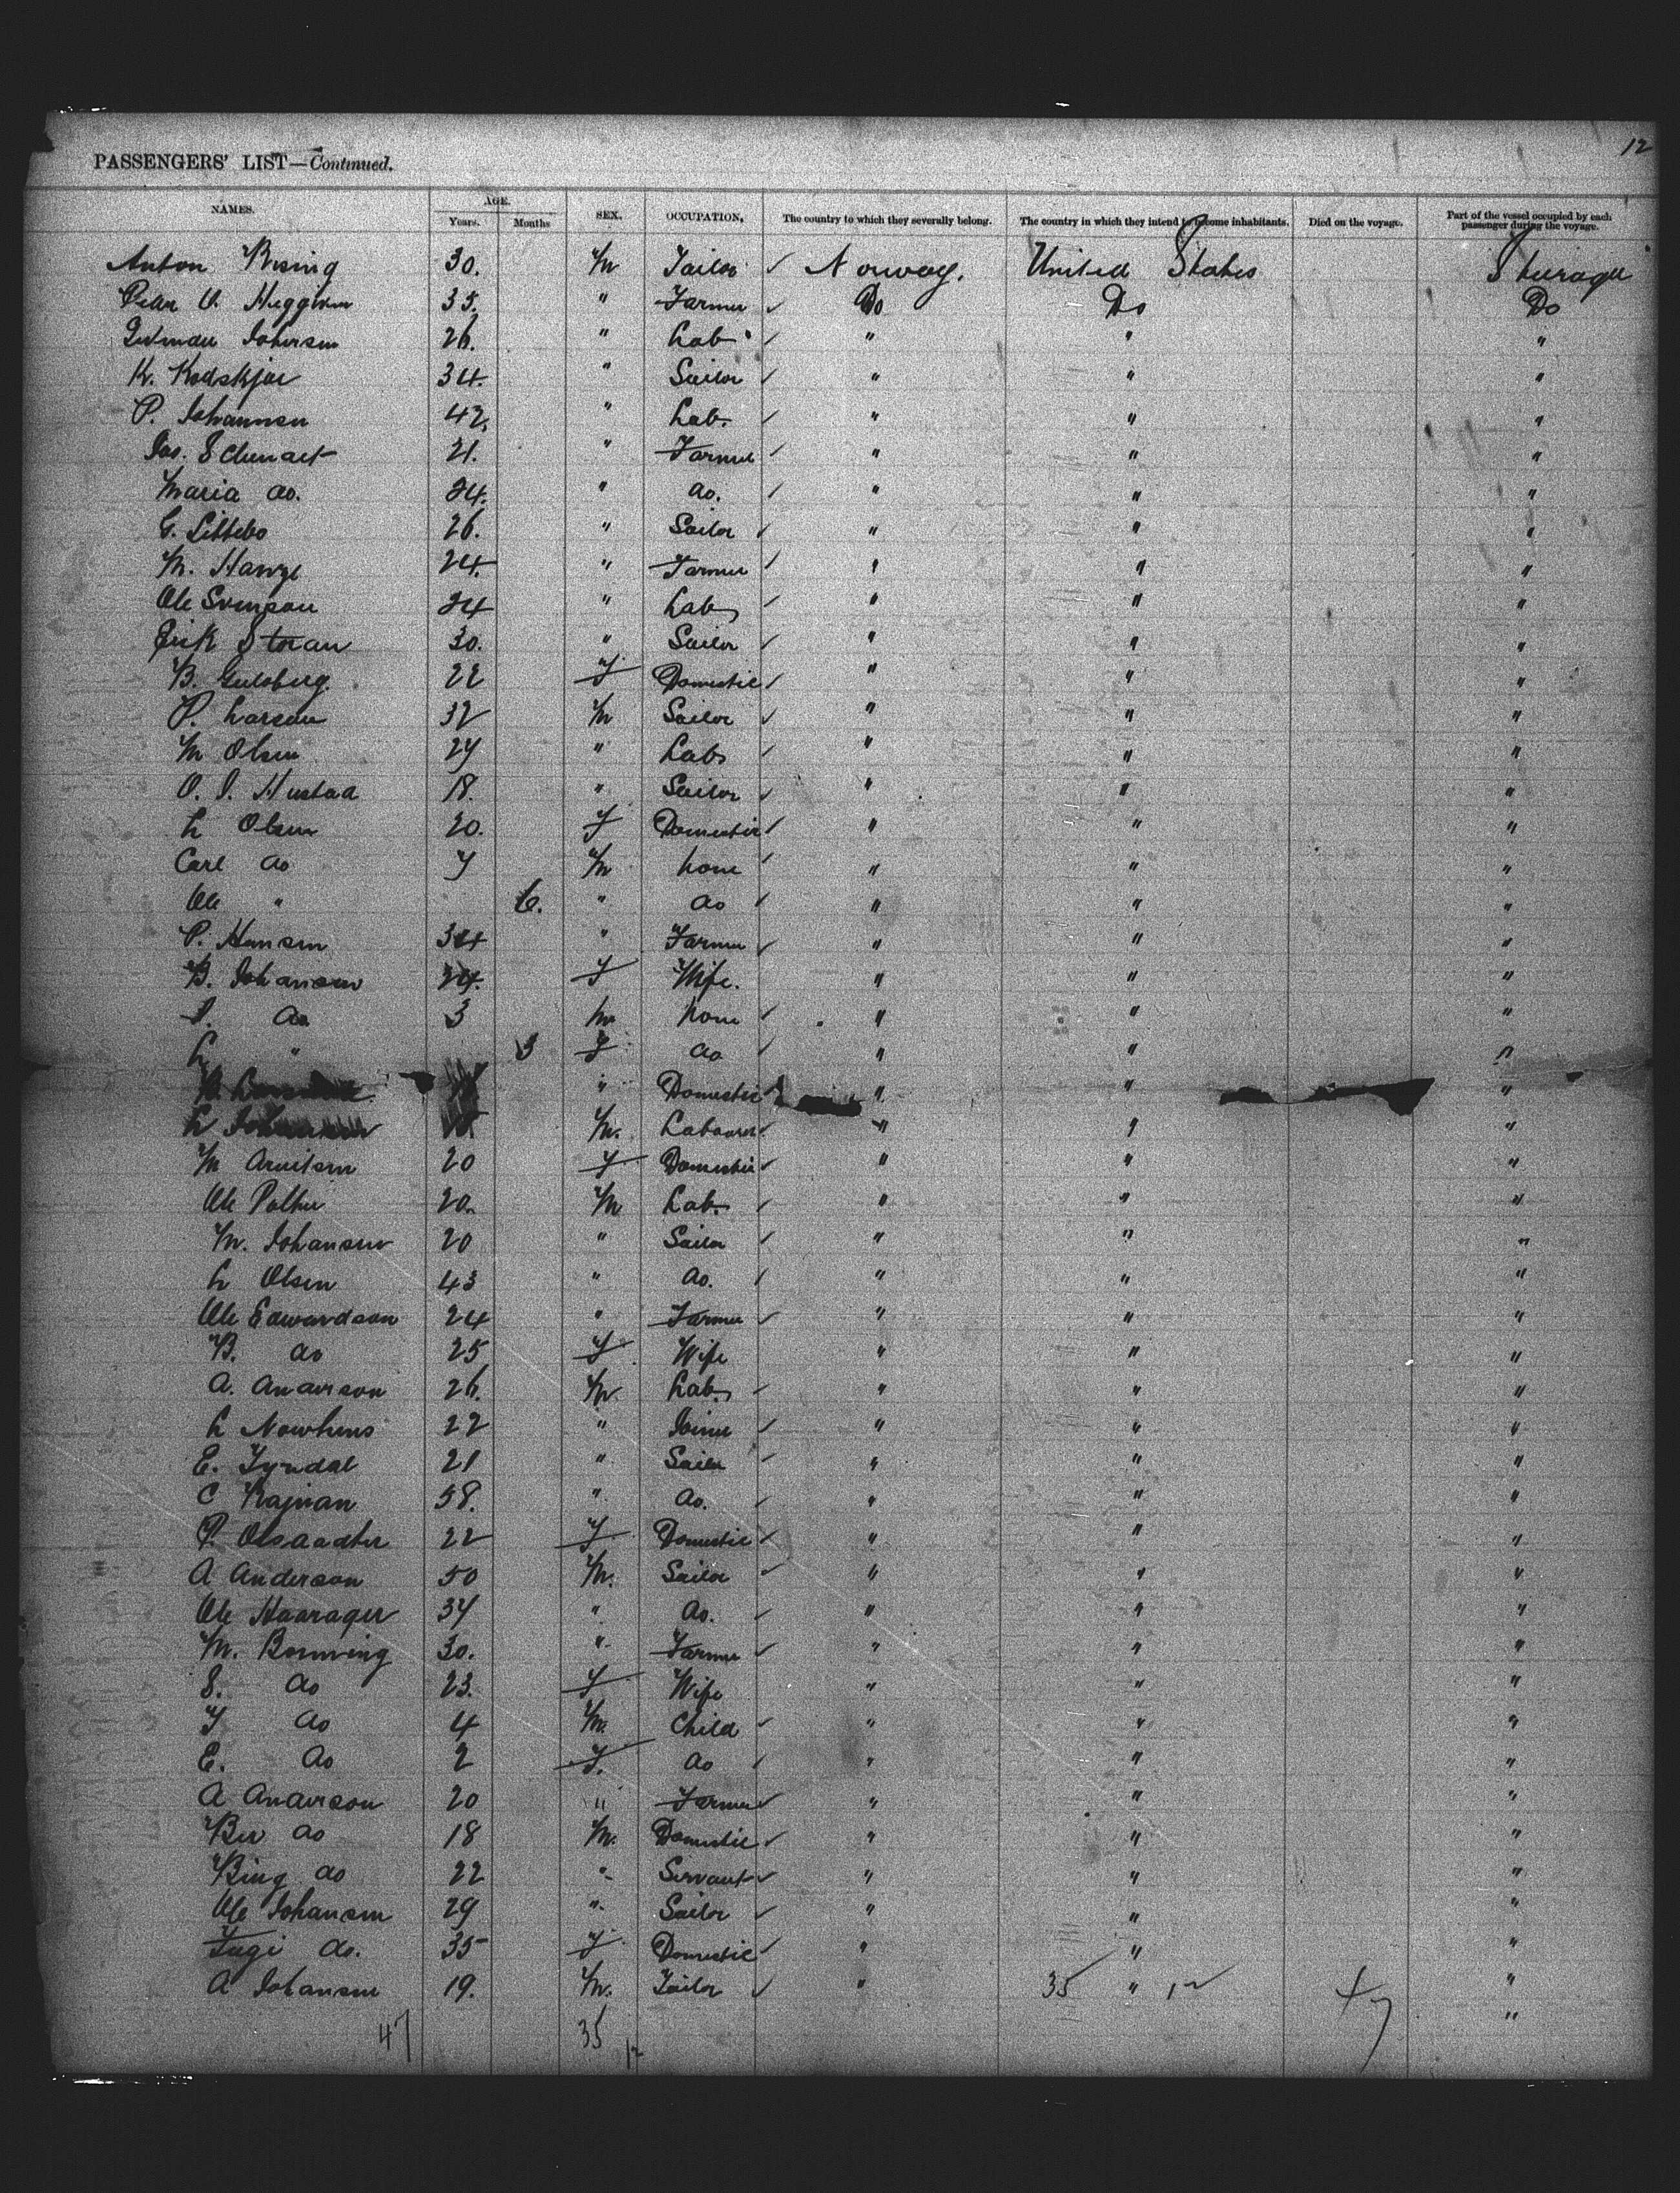 12
PASSENGERS' LIST—Continued.
NAMES. AGE. Years. Months SEX. OCCUPATION, The country to which they severally belong. The country in which they intend to become inhabitants. Died on the voyage. Part of the vessel occupied by each passenger during the voyage.
Anton 30. M Tailor ✓ Norway. United States Steerage
Peder O. 35. " Farmer ✓ Do Do Do
26. " Lab ✓ " " "
K. Rodskjar 34. " Sailor ✓ " " "
P. Johannsen 42. " Lab. ✓ " " "
Jas. 21. " Farmer ✓ " " "
Maria do. 24. " do. ✓ " " "
G. 26. " Sailor ✓ " " "
M. 24. " Farmer ✓ " " "
Ole Svenson 24 " Lab ✓ " " "
Erik 30. " Sailor ✓ " " "
B. Gulsberg. 22 F Domestic ✓ " " "
P. Larson 32 M Sailor ✓ " " "
M Olsen 27 " Lab ✓ " " "
O. I. Hustad 18. " Sailor ✓ " " "
L Olsen 20. F Domestic ✓ " " "
Carl do 7 M None ✓ " " "
Ole " 6. " do ✓ " " "
P. Hansen 34 " Farmer ✓ " " "
B. Johansen 24. F Wife. " " "
I. do 3 M None ✓ " " "
L " 3 F do ✓ " " "
" Domestic " " "
L M. Labourer ✓ " " "
M Arnetsen 20 F Domestic ✓ " " "
Ole 20. M Lab. ✓ " " "
M. Johansen 20 " Sailor ✓ " " "
L Olsen 43 " do. ✓ " " "
Ole Edwardson 24 " Farmer ✓ " " "
B. do 25 F Wife " " "
A. Anderson 26. M. Lab ✓ " " "
L 22 " Joiner ✓ " " "
E. Tyndal 21 " Sailor ✓ " " "
C 58. " do. ✓ " " "
P. 22 F Domestic ✓ " " "
A Anderson 50 M. Sailor ✓ " " "
Ole Haarager 37 " do. ✓ " " "
M. 30. " Farmer ✓ " " "
S. do 23. F Wife " " "
F do 4 M. Child ✓ " " "
E. do 2 F. do ✓ " " "
A Anderson 20 " Farmer ✓ " " "
Ber do 18 M. Domestic ✓ " " "
Bing do 22 " Servant ✓ " " "
Ole Johansen 29 " Sailor ✓ " " "
do. 35 F Domestic ✓ " " "
A Johansen 19. M. Tailor ✓ " 35 " 12 47 "
47 35 12 "